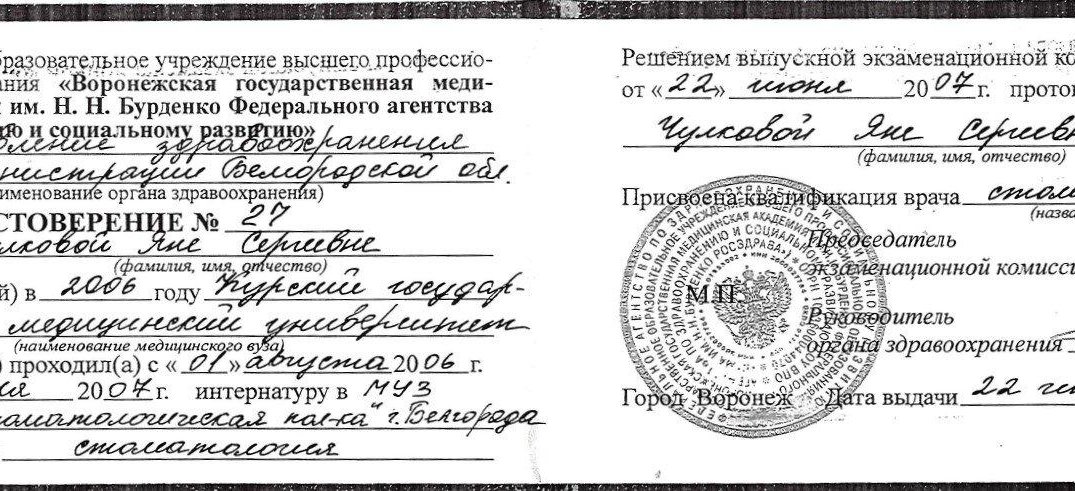 бразовательное учреждение высшего профессио-
ания «Воронежская государственная меди-
им. Н. Н. Бурденко Федерального агентства
ию и социальному развитию»
вление здравоохранения
нистрации Белгородской обл.
именование органа здравоохранения)
СТОВЕРЕНИЕ № 27
улковой Яне Сергеевне
(фамилия, имя, отчество)
й) в 2006 году Курский государ-
медицинский университет
(наименование медицинского вуза)
) проходил(а) с «01» августа 2006 г.
ня 2007 г. интернатуру в МУЗ
оматологическая пол-ка" г. Белгорода
стоматология
Решением выпускной экзаменационной ко
от «22» июня 2007 г. прото
Чулковой Яне Сергеевн
(фамилия, имя, отчество)
Присвоена квалификация врача стома
(назва
Председатель
экзаменационной комисси
М.П.
Руководитель
органа здравоохранения
Город Воронеж Дата выдачи 22 ию